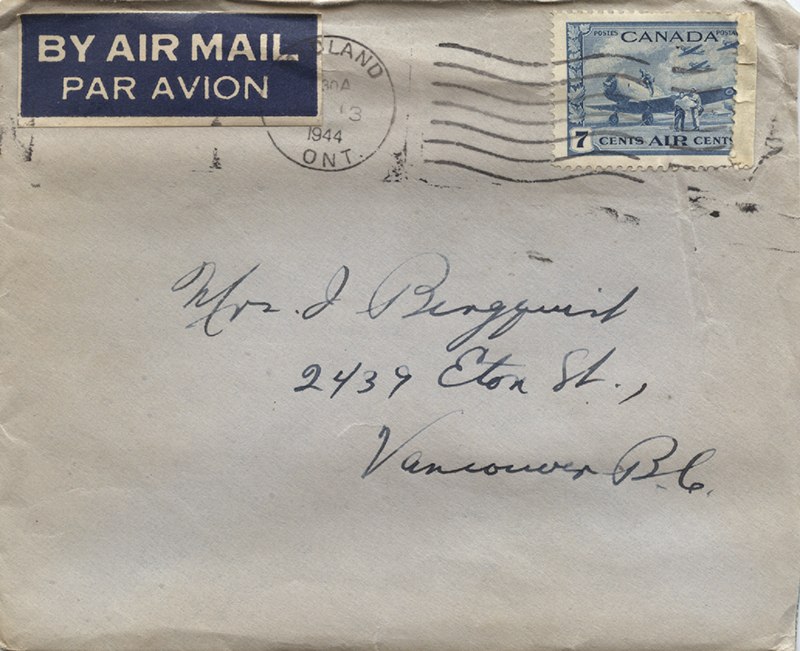 BY AIR MAIL
PAR AVION
1944
ONT.
POSTES CANADA
7 CENTS AIR CENTS
Mrs. J Bergquist
2439 Eton St.,
Vancouver B.C.